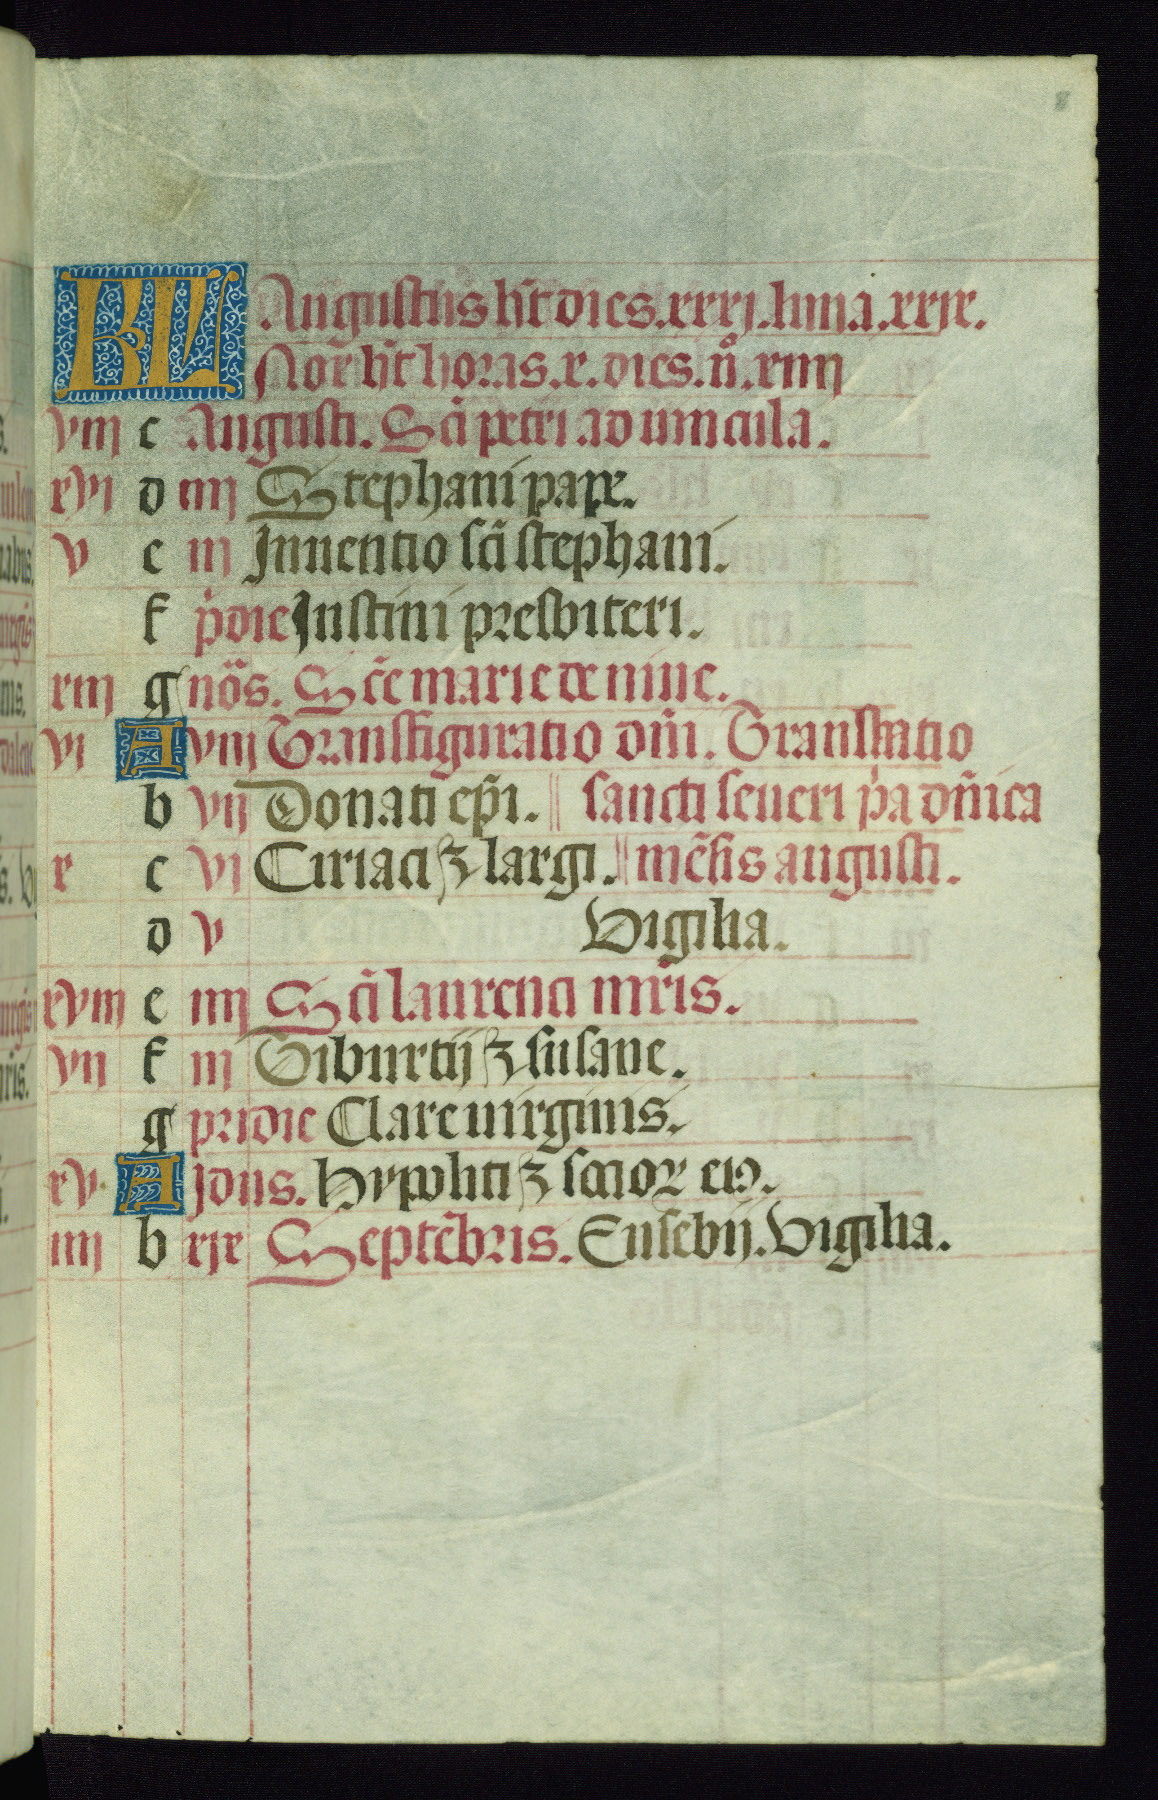 KL Augustus hꝰt dies.xxxj.luna.xxix.
Nox hꝰt horas.x.dies.ṽ.xiiij
viij c Augusti. Scī petri ad uincula.
xvi d iiij Stephani pape.
v e iij Inuentio scī stephani.
f p̍die Iustini presbiteri.
xiij g nōs. Scē marie de niue.
vi A viij Transfiguratio dnī. Translatio
b vij Donati epī. || sancti seueri pͥa dn̄ica
x c vi Ciriaci ⁊ largi. || mēsis augusti.
d v Vigilia.
xviij e iiij Scī laurencii mr̄is.
vij f iij Tiburtij ⁊ susane.
g pridie Clare uirginis.
xv A jdus. Hypoliti ⁊ socioꝝ eiꝰ.
iiij b xix Septēbris. Eusebij. Vigilia.